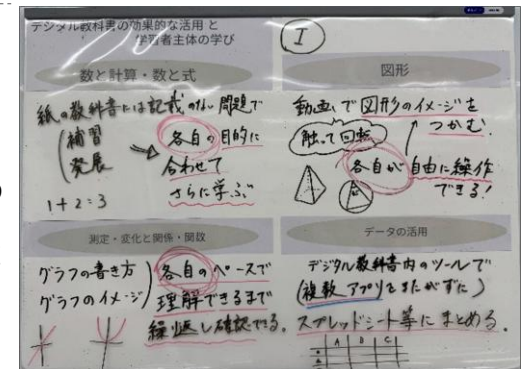 デジタル教科書の効果的な活用 と
学習者主体の学び
I
数と計算・数と式
紙の教科書には記載のない問題で
補習
発展
各自の目的に
合わせて
さらに学ぶ
1+2=3
図形
動画で図形のイメージを
つかむ.
触って回転
各自が自由に操作
できる!
測定・変化と関係・関数
グラフの書き方
グラフのイメージ
各自のペースで
理解できるまで
繰り返し確認できる.
データの活用
デジタル教科書内のツールで
(複数アプリをまたがずに)
スプレッドシート等にまとめる.
A B C